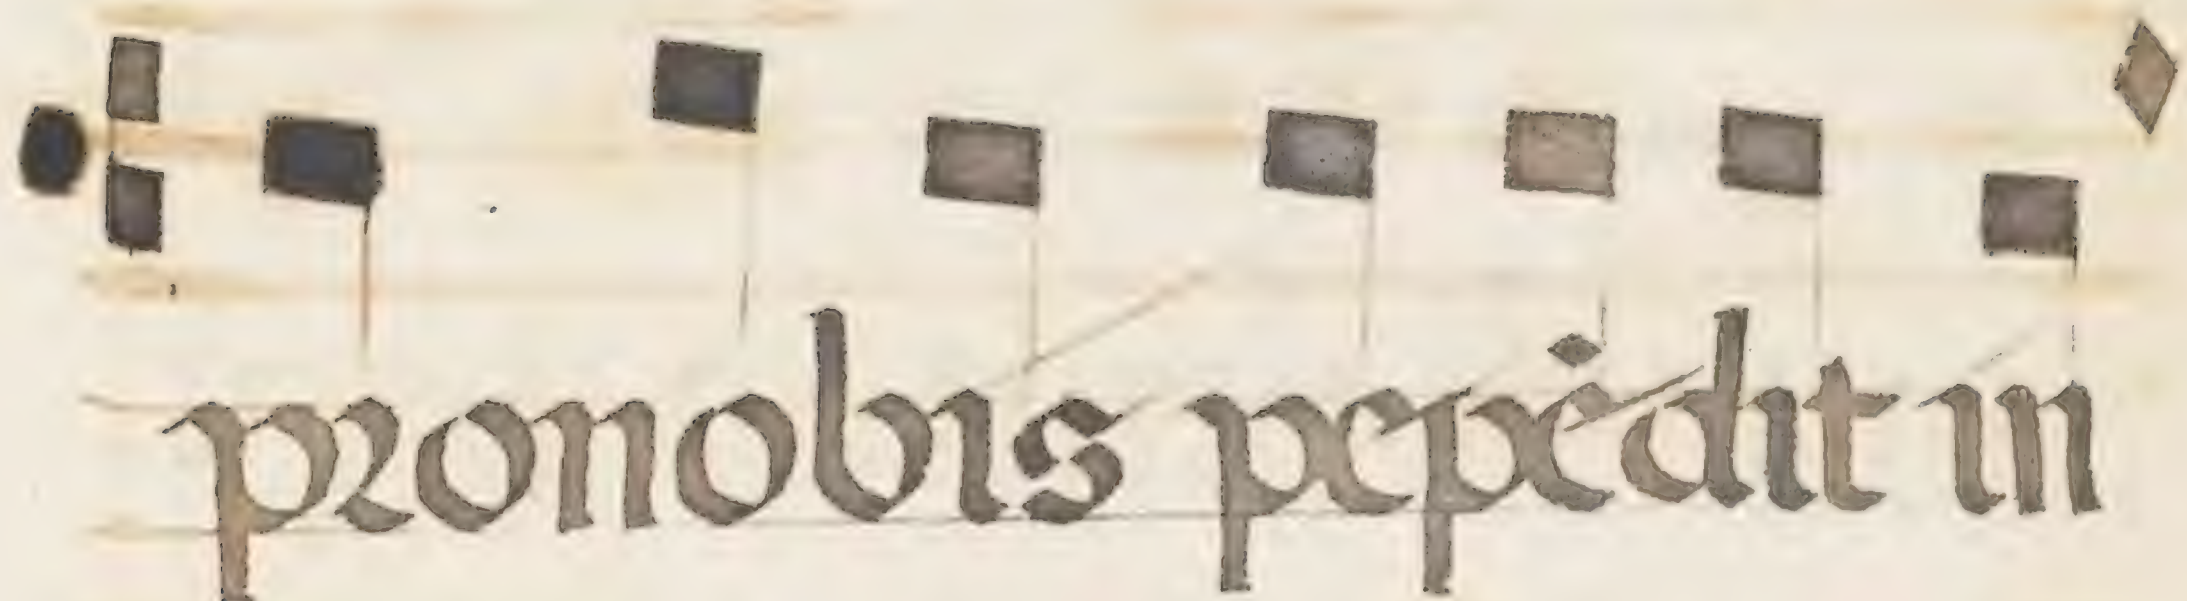 pronobis pepēdit in